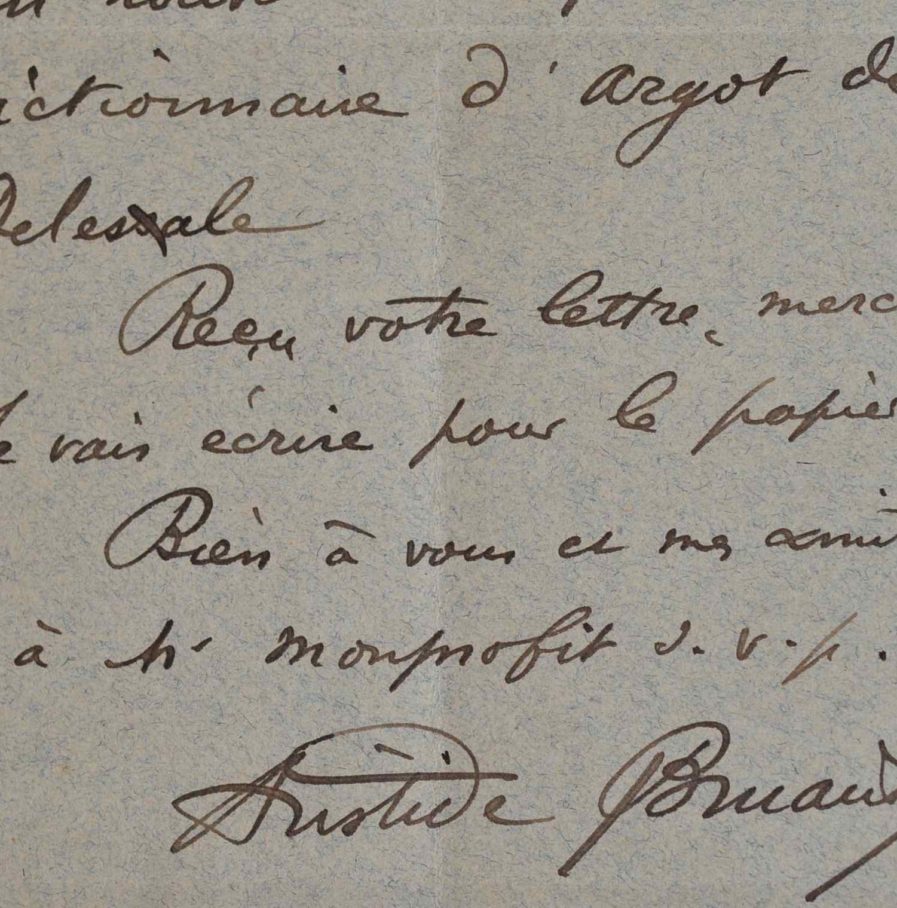 ictionnaire d'argot de
Delesale
Reçu votre lettre, merc
Je vais écrire pour le papier
Bien à vous et mes amit
à Mr Monprofit s.v.p.
Aristide Bruant